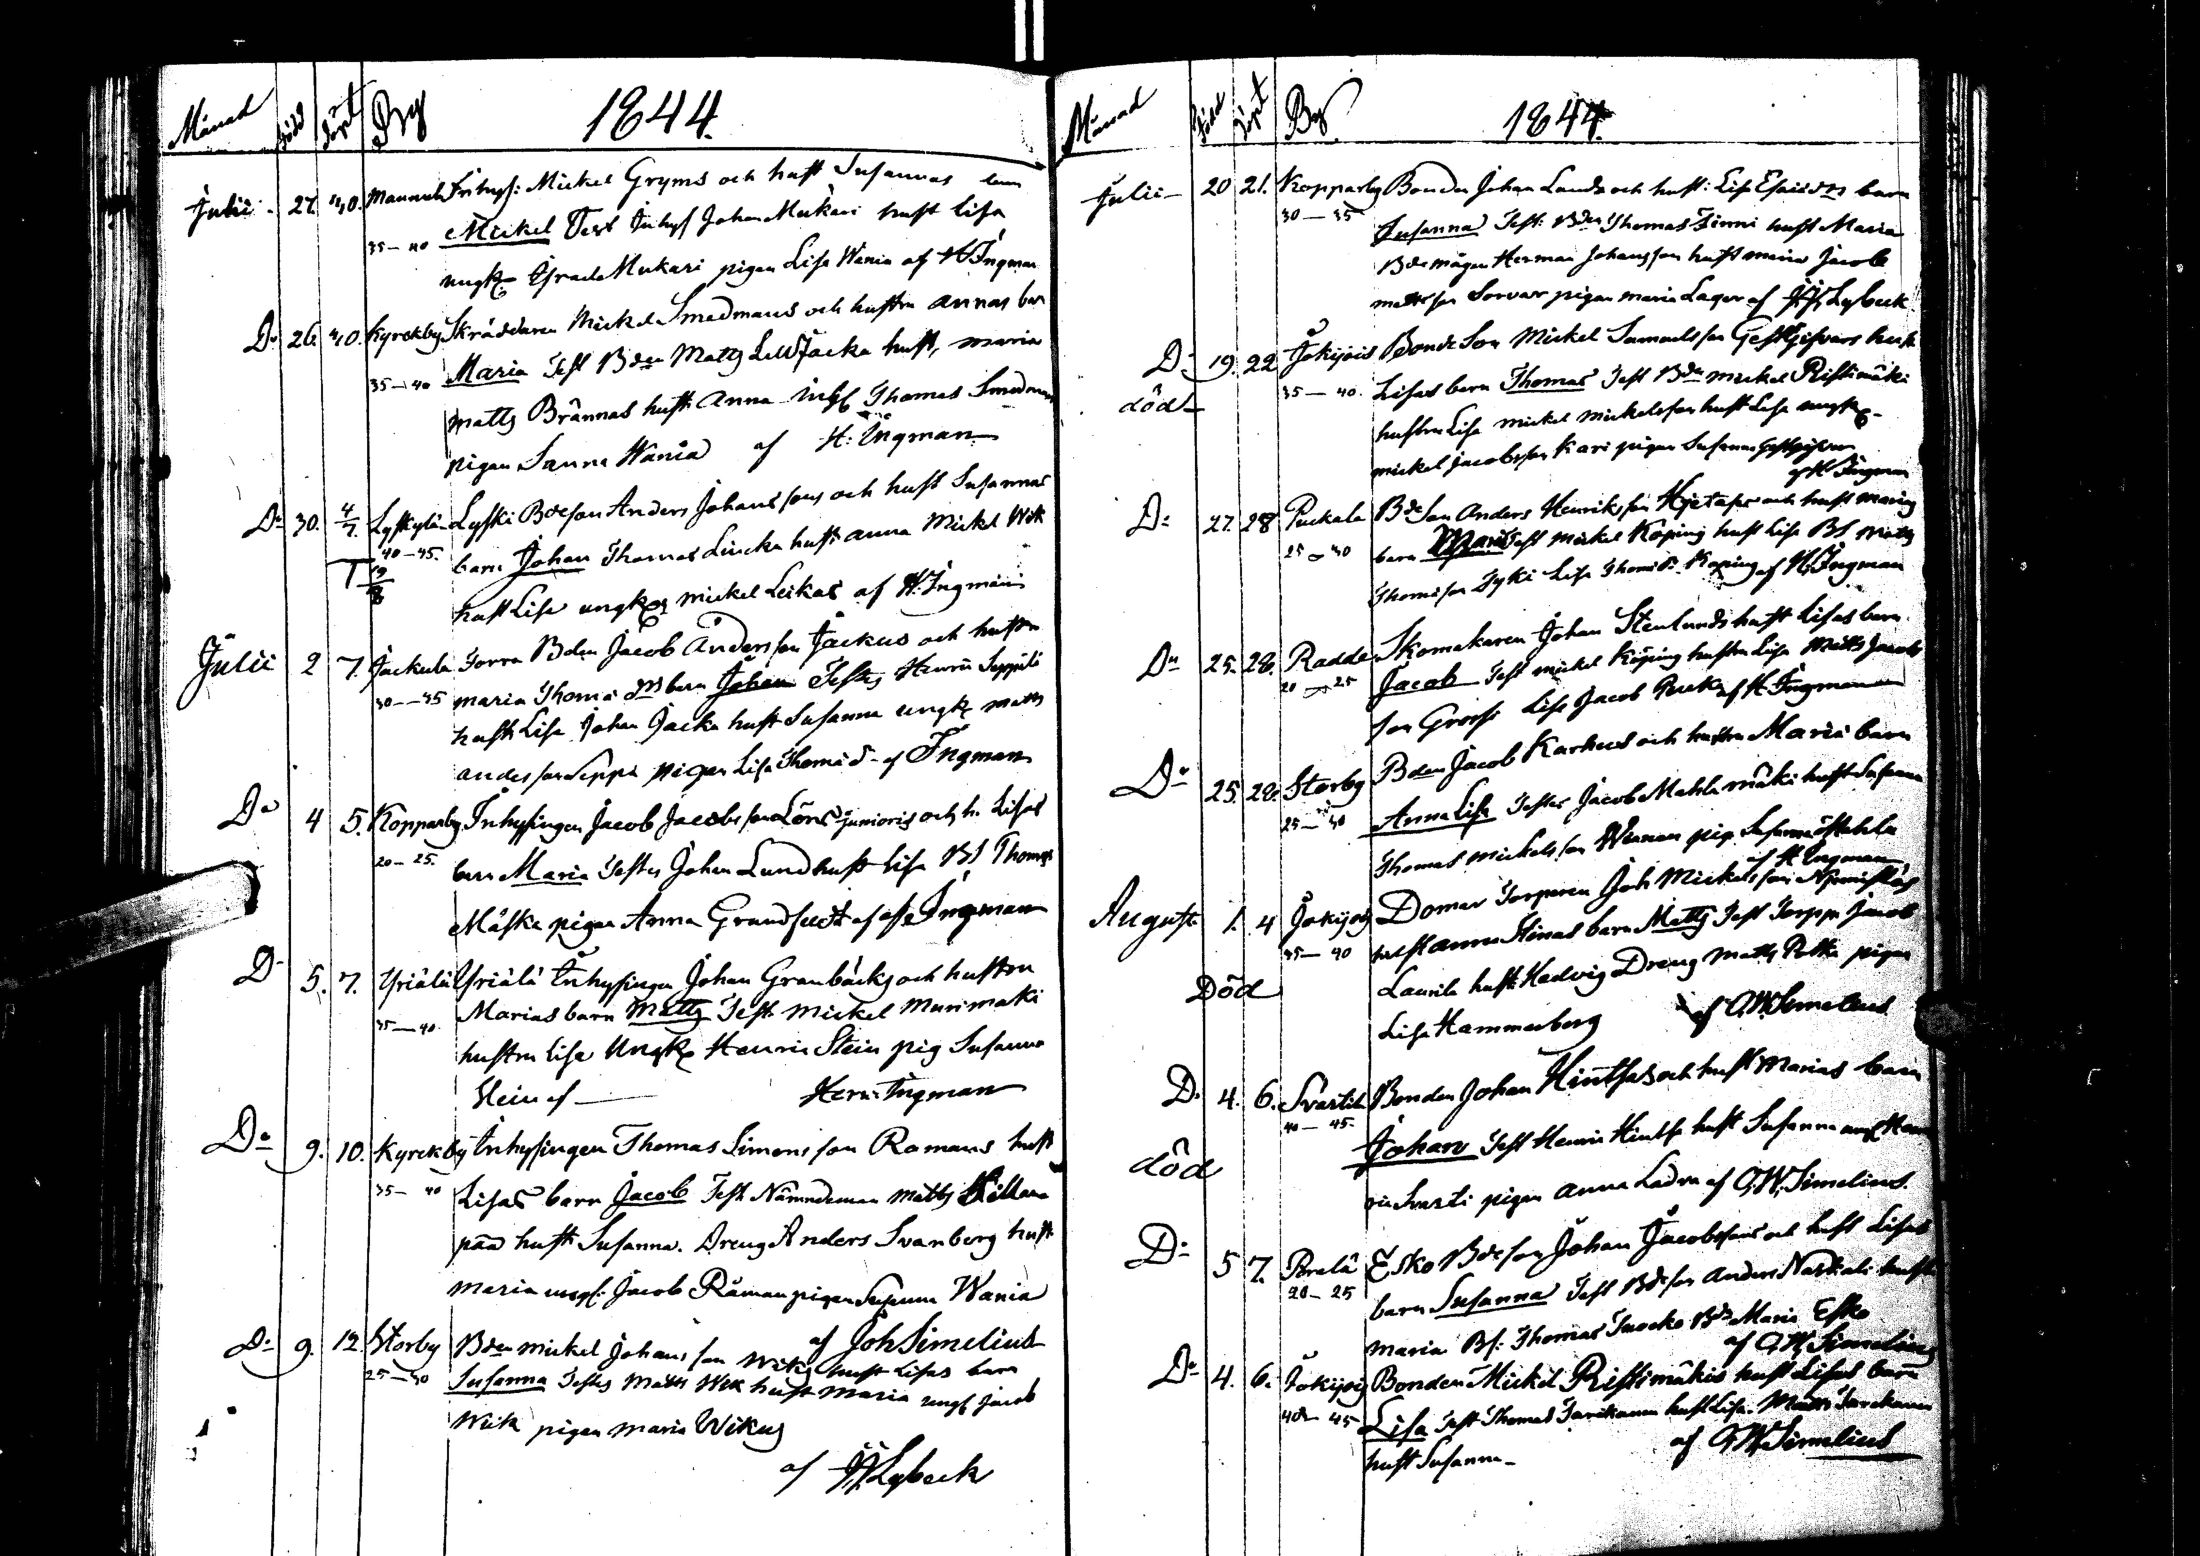 Månad Född Döpt By 1844.
Julii 27. 30. Mannula Inhys: Mickel Gryms och hust Susannas barn
35–40 Mickel Test Inhys Johan Mickari hust Lisa
ungk Mukari pigan Lisa Wänia af H Ingman
Do 26. 30. Kyrckby Skräddaren Mickel Smedmans och hustru Annas barn
35–40 Maria Test Bden Matts Jacka hust, Maria
Matts Brännas hust: Anna Thomas Smedman
pigan Sanna Wänia af H: Ingman
Do 30. 4/7. Lyski Bdeson Anders Johanssons och hust Susannas
40–45. barn Johan Thomas Lincka hust Anna Mickel Wik
hust Lisa ungk Mickel Leikas af H. Ingman
Julii 2 7. Jackula Torra Bden Jacob Andersson Jackus och hustru
30–35 Maria Thomæ barn Johan Testes Henric Seppilä
hust Lisa Johan Jacka hust Susanna ungk Matts
Andersson Seppä pigan Lisa Thomæ d. af Ingman
Do 4 5. Kopparby Inhysingen Jacob Jacobsson Löns junioris och h. Lisas
20–25. barn Maria Testes Johan Lund hust Lisa Bs Thomas
Mäska pigan Anna Ingman
D 5. 7. Yriälä Yriälä Inhysingen Johan Granbäcks och hustru
35–40. Marias barn Matts Test Mickel Murimäki
hustru Lisa Ungk Henric Stein pig Susanna
Hein af Henr: Ingman
Do 9. 10. Kyrckby Inhysingen Thomas Simonsson Romans hust
35–40 Lisas barn Jacob Test Nämndeman Matts
pää hust Susanna. Dreng Anders Svanberg hust
Maria ungk: Jacob Råman pigan Susanna Wania
af Joh Simelius
Do 9. 12. Storby Bden Mickel Johansson Wiks hust Lisas barn
25–30 Susanna Testes Matts Wik hust Maria ungk Jacob
Wiik pigan Maria Wikus
af Lybeck
Månad Född Döpt By 1844.
Julii 20 21. Kopparby Bonden Johan Lunds och hust: Lisa barn
30–35 Susanna Test: Bden Thomas Finni hust Maria
Bde mågen Herman Johansson hust Maria Jacob
Mattsson Sorvar pigan Maria Lager af Lybeck
Do 19. 22 Jokipois Bonde Son Mickel Samuelsson Gestgifvars hust
35–40. Lisas barn Thomas Test Bden Mickel Ristimäki
död hustru Lisa Mickel Mickelsson hust Lisa ungk
Mickel Jacobsson Kari pigan Susanna Gestgifvar
af H Ingman
Do 27. 28 Puckala Bde Son Anders Henriksson och hust Marias
25–30 barn Maria Test Mickel Köping hust Lisa Bs Matts
Thomasson Lisa Köping af H. Ingman
Do 25. 28. Radde Skomakaren Johan Stenlunds hust Lisas barn
20–25 Jacob Test Mickel Köping hustru Lisa Matts Jacob
son Lisa Jacob af H. Ingman
Do 25. 28. Storby Bden Jacob Karhus och hustru Maria barn
25–30 Anna Lisa Testes Jacob Mahlamäki hust Susanna
Thomas Mickelsson pig Susanna
af H Ingman
Augusti 1. 4 Jokipois Domar Torparen Joh Mickelsson
35–40 hust Anna Stinas barn Matts Test Torppr Jacob
Död Laurila hust Hedvig Dreng Matts pigan
Lisa Hammarberg af G.W. Simelius
D. 4. 6. Svartila Bonden Johan Hintsas och hust Marias barn
40–45. Johan Test Henric Hintsa hust Susanna ungk Hen
död ric Svarti pigan Anna Ladva af G.W. Simelius.
Do 5 7. Porälä Esko Bdeson Johan Jacobssons och hust Lisas
20–25 barn Susanna Test Bdeson Anders hust
Maria Bs: Thomas Maria Esko
af G.W. Simelius
Do 4. 6. Jokipois Bonden Mickel Ristimäkis hust Lisas barn
40–45 Lisa Test Thomas hust Lisa. Matts
hust Susanna af G.W. Simelius